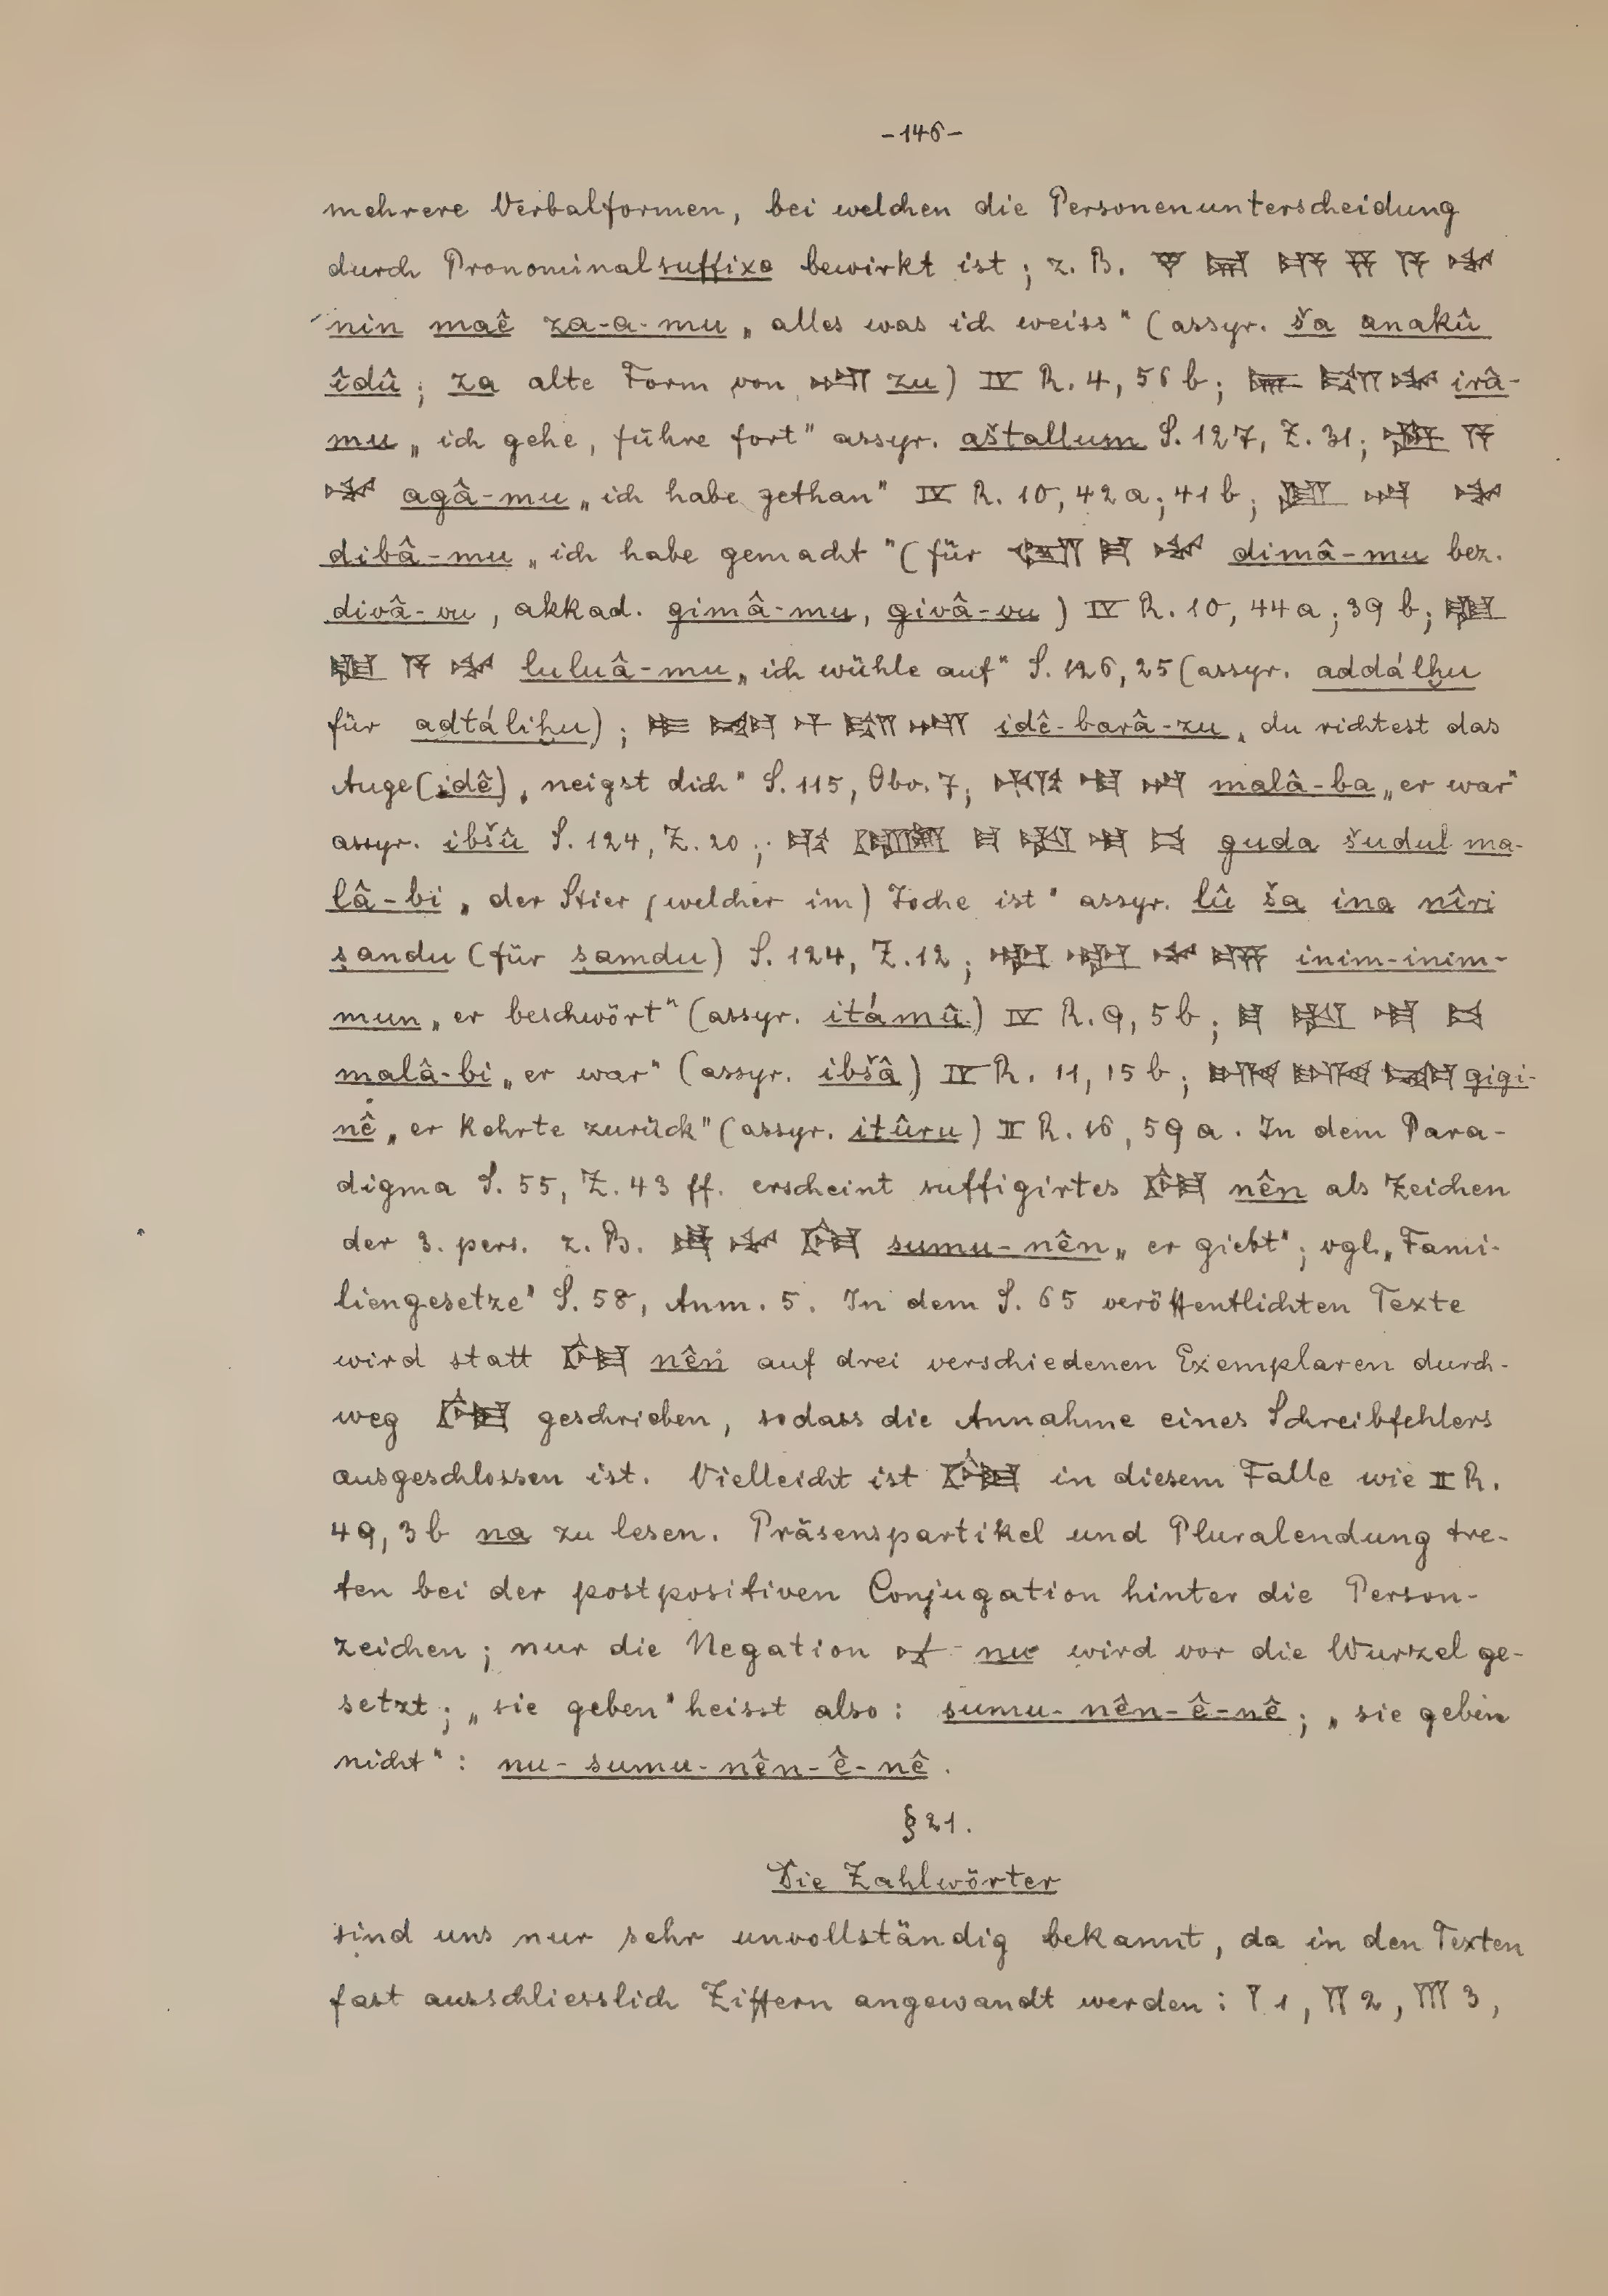 -146-
mehrere Verbalformen, bei welchen die Personenunterscheidung
durch Pronominalsuffixe bewirkt ist; z. B.
nin maê za-a-mu „alles was ich weiss“ (assyr. ša anakû
îdû; za alte Form von zu) IV R. 4, 56 b; irâ-
mu „ich gehe, führe fort“ assyr. aštallum S. 127, Z. 31;
agâ-mu „ich habe gethan“ IV R. 10, 42 a; 41 b;
dibâ-mu „ich habe gemacht“ (für dimâ-mu bez.
divâ-vu, akkad. gimâ-mu, givâ-vu) IV R. 10, 44 a; 39 b;
luluâ-mu „ich wühle auf“ S. 126, 25 (assyr. addálḫu
für adtáliḫu); idê-barâ-zu „du richtest das
Auge (idê), neigst dich“ S. 115, Obv. 7; malâ-ba „er war“
assyr. ibšû S. 124, Z. 20; guda šudul ma-
lâ-bi „der Stier (welcher im) Joche ist“ assyr. lû ša ina nîri
ṣandu (für ṣamdu) S. 124, Z. 12; inim-inim-
mun „er beschwört“ (assyr. itámû) IV R. 9, 5 b;
malâ-bi „er war“ (assyr. ibšâ) IV R. 11, 15 b; gigi-
nê „er kehrte zurück“ (assyr. itûru) II R. 16, 59 a. In dem Para-
digma S. 55, Z. 43 ff. erscheint suffigirtes nên als Zeichen
der 3. pers. z. B. sumu-nên „er giebt“; vgl. „Fami-
liengesetze“ S. 58, Anm. 5. In dem S. 65 veröffentlichten Texte
wird statt nên auf drei verschiedenen Exemplaren durch-
weg geschrieben, sodass die Annahme eines Schreibfehlers
ausgeschlossen ist. Vielleicht ist in diesem Falle wie II R.
49, 3 b na zu lesen. Präsenspartikel und Pluralendung tre-
ten bei der postpositiven Conjugation hinter die Person-
zeichen; nur die Negation nu wird vor die Wurzel ge-
setzt; „sie geben“ heisst also: sumu-nên-ê-nê; „sie geben
nicht“: nu-sumu-nên-ê-nê.
§ 21.
Die Zahlwörter
sind uns nur sehr unvollständig bekannt, da in den Texten
fast ausschliesslich Ziffern angewandt werden: 𒁹 1, 𒈫 2, 𒐈 3,